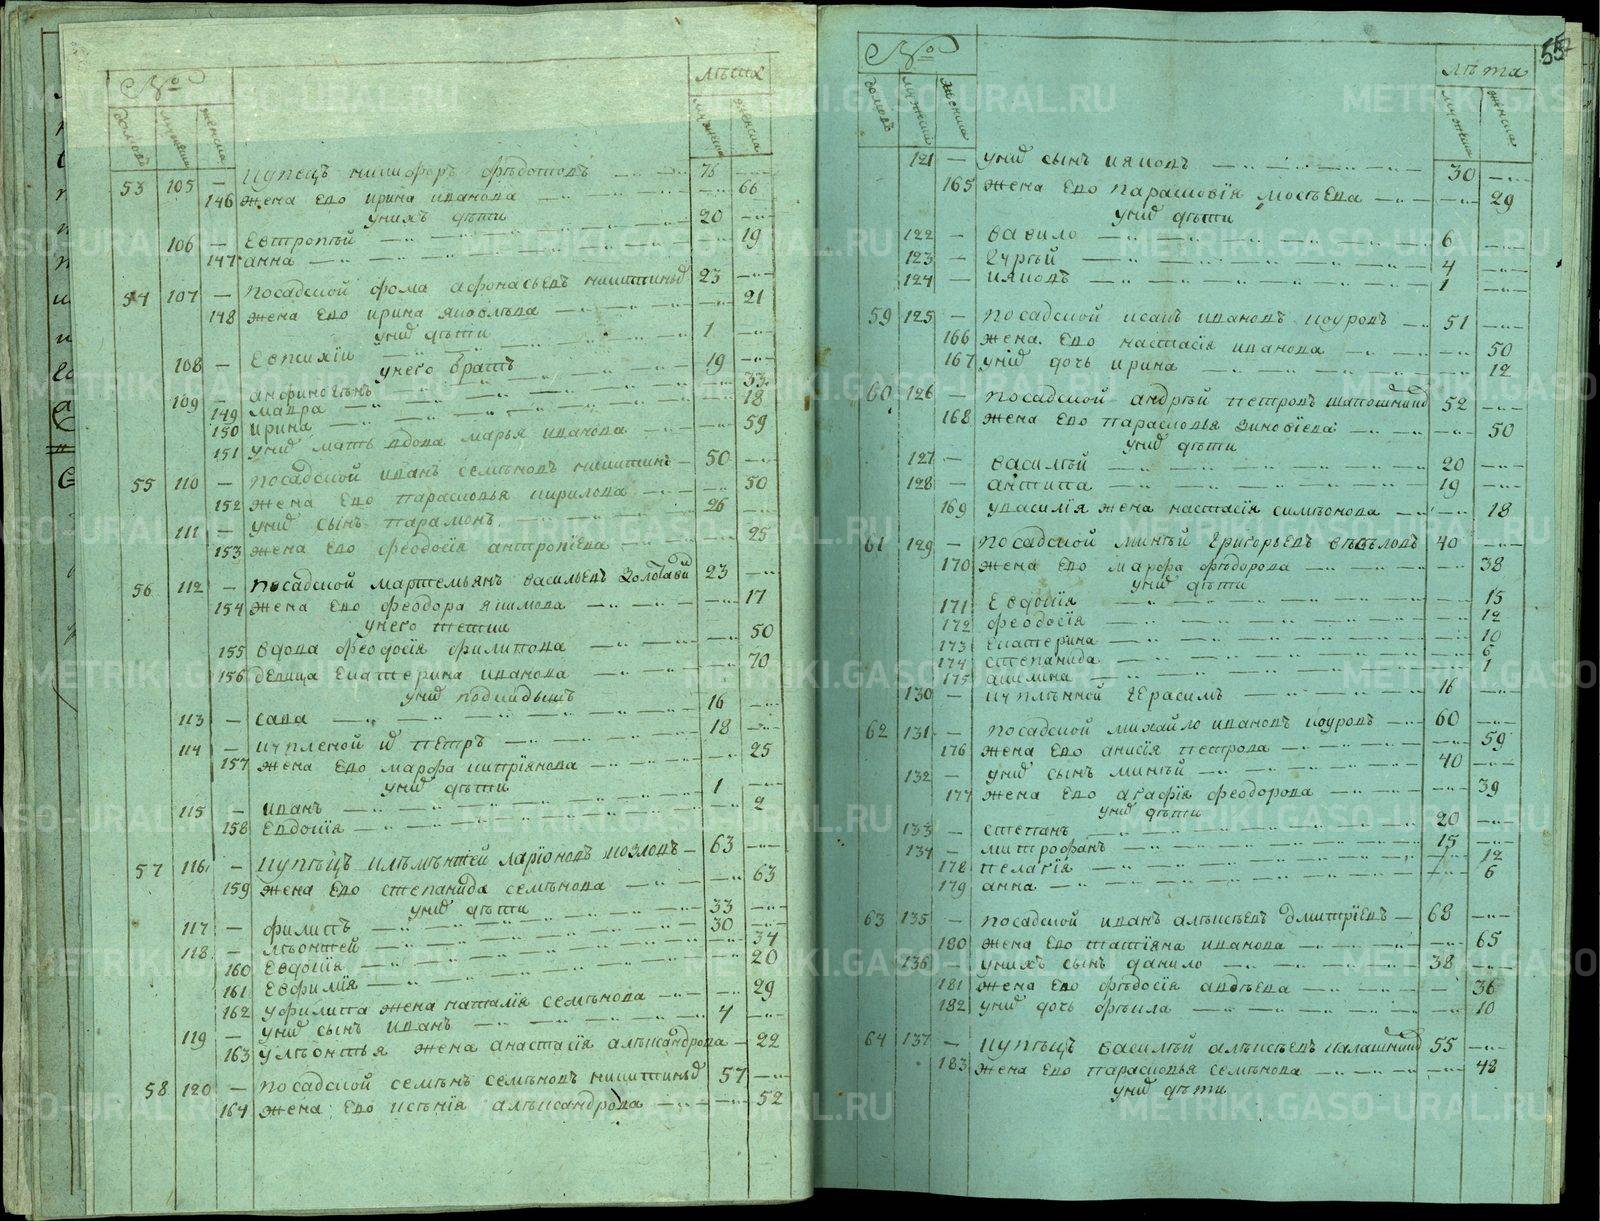 №
лѣта
домовъ мужеска женска
мужеска женска
53 105 – купецъ никифоръ ѳѣдотовъ 75
146 жена Ево ирина иванова 66
унихъ дѣти
106 – Евтропѣй 20
147 анна 19
54 107 – посадской фома афонасьевъ никитиныхъ 23
148 жена Ево ирина яковлѣва 21
уних дѣти
108 – Евтихiи 1
унего братъ
109 – 19
149 мавра 33
150 ирина 18
151 уних мать вдова марья иванова 59
55 110 – посадской иванъ семѣновъ никитинъ 50
152 жена Ево парасковья кирилова 50
111 – уних сынъ парамонъ 26
153 жена Ево феодосiя антропiева 25
56 112 – посадской мартемьянъ васильевъ 23
154 жена Ево феодора якимова 17
унего тетки
155 вдова феодосiя филипова 50
156 дѣвица Екатерина иванова 70
уних подкидышъ
113 – сава 16
114 – купленой петръ 18
157 жена Ево марфа кипрiянова 25
уних дѣти
115 – иванъ 1
158 Евдокiя 2
57 116 – купѣцъ ларiоновъ козловъ 63
159 жена Ево степанида семѣнова 63
уних дѣти
117 – филипъ 33
118 – лѣонтей 30
160 Евдокiя 34
161 Евфимiя 20
162 уфилипа жена наталiя семѣнова 29
119 – уних сынъ иванъ 4
163 улѣонтья жена анастасiя алѣксандрова 22
58 120 – посадской семѣнъ семѣновъ никитиныхъ 57
164 жена Ево ксѣнiя алѣксандрова 52
55
№
лѣта
домовъ мужеска женска
мужеска женска
121 – уних сынъ яковъ 30
165 жена Ево парасковiя мосѣева 29
уних дѣти
122 – вавило 6
123 – гургѣй 4
124 – яковъ 1
59 125 – посадской исакъ ивановъ коуровъ 51
166 жена Ево настасiя иванова 50
167 уних дочь ирина 12
60 126 – посадской андрѣй петровъ 52
168 жена Ево парасковья зиновiева 50
уних дѣти
127 – василѣй 20
128 – антипа 19
169 увасилiя жена настасiя симѣонова 18
61 129 – посадской минѣй григорьевъ 40
170 жена Ево марфа фѣодорова 38
уних дѣти
171 Евдокiя 15
172 феодосiя 12
173 Екатерина 10
174 степанида 6
175 акилина 1
130 – куплѣнной герасимъ 16
62 131 – посадской михайло ивановъ коуровъ 60
176 жена Ево анисiя петрова 59
132 – уних сынъ минѣй 40
177 жена Ево агафiя феодорова 39
уних дѣти
133 – степанъ 20
134 – митрофанъ 15
178 пелагiя 12
179 анна 6
63 135 – посадской иванъ алѣксѣевъ дмитрiевъ 68
180 жена Ево татiяна иванова 65
136 – унихъ сынъ данило 38
181 жена Ево фѣдосiя авдѣева 36
182 уних дочь фѣкла 10
64 137 – купѣцъ василѣй алѣксѣевъ калашников 55
183 жена Ево парасковья семѣнова 48
уних дѣти
METRIKI.GASO-URAL.RU